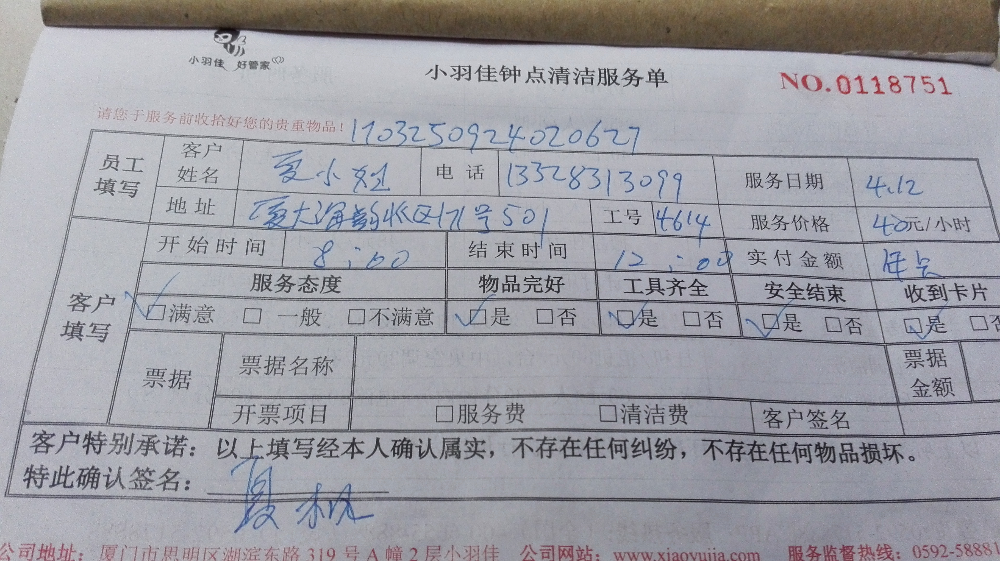 小羽佳 好管家
小羽佳钟点清洁服务单
NO.0118751
请您于服务前收拾好您的贵重物品！
1703250924020627
员工填写 客户姓名 夏小姐 电话 13328313099 服务日期 4.12
地址 501 工号 4614 服务价格 40元/小时
开始时间 8:00 结束时间 12:00 实付金额
客户填写 服务态度 物品完好 工具齐全 安全结束 收到卡片
☑满意 □一般 □不满意 ☑是 □否 ☑是 □否 ☑是 □否 ☑是 □否
票据 票据名称 票据金额
开票项目 □服务费 □清洁费 客户签名
客户特别承诺：以上填写经本人确认属实，不存在任何纠纷，不存在任何物品损坏。
特此确认签名：夏
公司地址：厦门市思明区湖滨东路 319 号 A 幢 2 层小羽佳 公司网站：www.xiaoyujia.com 服务监督热线：0592-58881